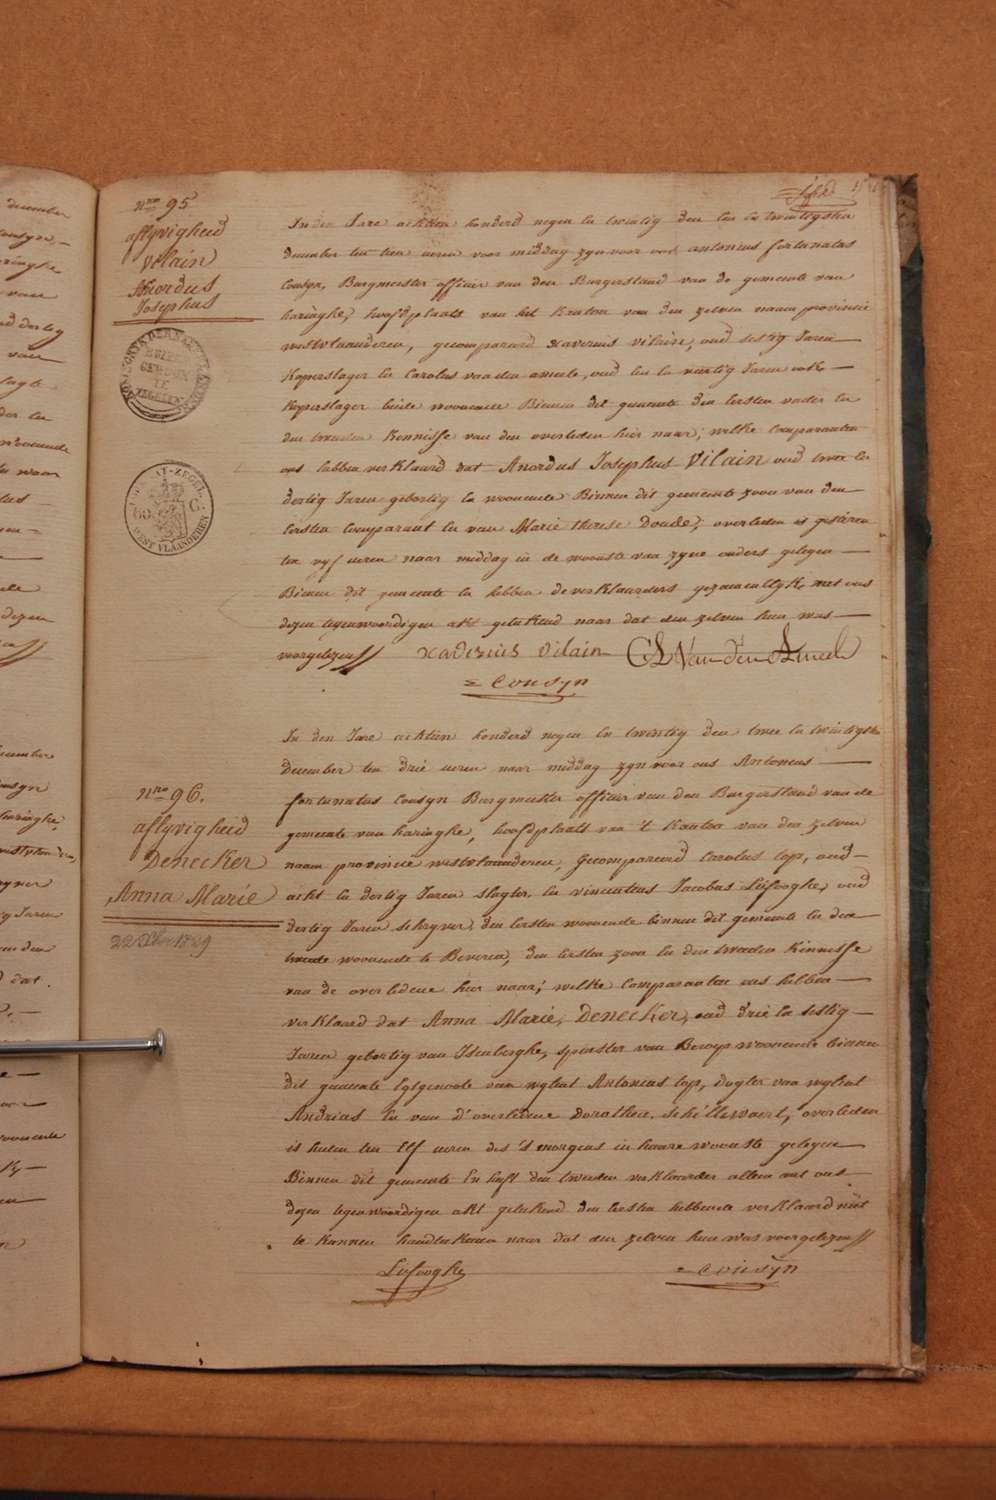 nro 95
aflyvigheid
vilain
Anordus
Josephus
In den Jare achtien honderd negen en twintig den een en twintigsten
december ten tien ueren voor middag zyn voor ons antonius fortunatus
Cousyn, Burgmeester officier van den Burgerstand van de gemeente van
haringhe, hoofdplaats van het Kanton van den zelven naam provincie
westvlaanderen, gecompareerd xaverius vilain, oud sestig Jaren
Koperslager en Carolus van den ameele, oud en veertig Jaren ook
Koperslager beide woonende Binnen dit gemeente den eersten vader en
den tweeden Kennisse van den overleden hier naar; welke Comparanten
ons hebben verklaard dat Anordus Josephus Vilain oud twee en
dertig Jaren gebortig en woonende Binnen dit gemeente zoon van den
eersten Comparant en van Marie therese Doude, overleden is gisteren
ten vyf ueren naar middag in de wooniste van zyne ouders gelegen
Binnen dit gemeente en hebben de verklaarders gezamentlyk met ons
dezen tegenwoordigen akt geteekend naar dat den zelven hun was
voorgelezen//
xaverius vilain CL Van den Ameele
= Cousyn
NEDERLANDEN
WEST VLAANDEREN
nro 96.
aflyvigheid
Denecker
Anna Marie
22 Xber 1829
In den Jare achtien honderd negen en twintig den twee en twintigsten
december ten drie ueren naar middag zyn voor ons Antonius
fortunatus Cousyn Burgmeester officier van den Burgerstand van de
gemeente van haringhe, hoofdplaats van 't Kanton van den zelven
naam provincie westvlaanderen, Gecompareerd Carolus top, oud
acht en dertig Jaren slagter, en vincentius Jacobus Lefooghe, oud
dertig Jaren schryver, den eersten woonende binnen dit gemeente en den
tweede woonende te Beveren, den eersten zoon en den tweeden Kinnisse
van de overledene hier naar; welke Comparanten ons hebben
verklaard dat Anna Marie, Denecker, oud drie en sestig
Jaren gebortig van Isenberghe, spinster van Beroep woonende binnen
dit gemeente Egtgenoote van wylent Antonius top, dogter van wylent
Andrias en van d'overledene dorothea, Schillewaert, overleden
is heden ten Elf ueren des 's morgens in haare wooniste gelegen
Binnen dit gemeente En heeft den tweeden verklaarder alleen met ons
dezen tegenwoordigen akt geteekend den eersten hebbende verklaard niet
te kunnen handteekenen naar dat den zelven hun was voorgelezen//
Lefooghe
= Cousyn